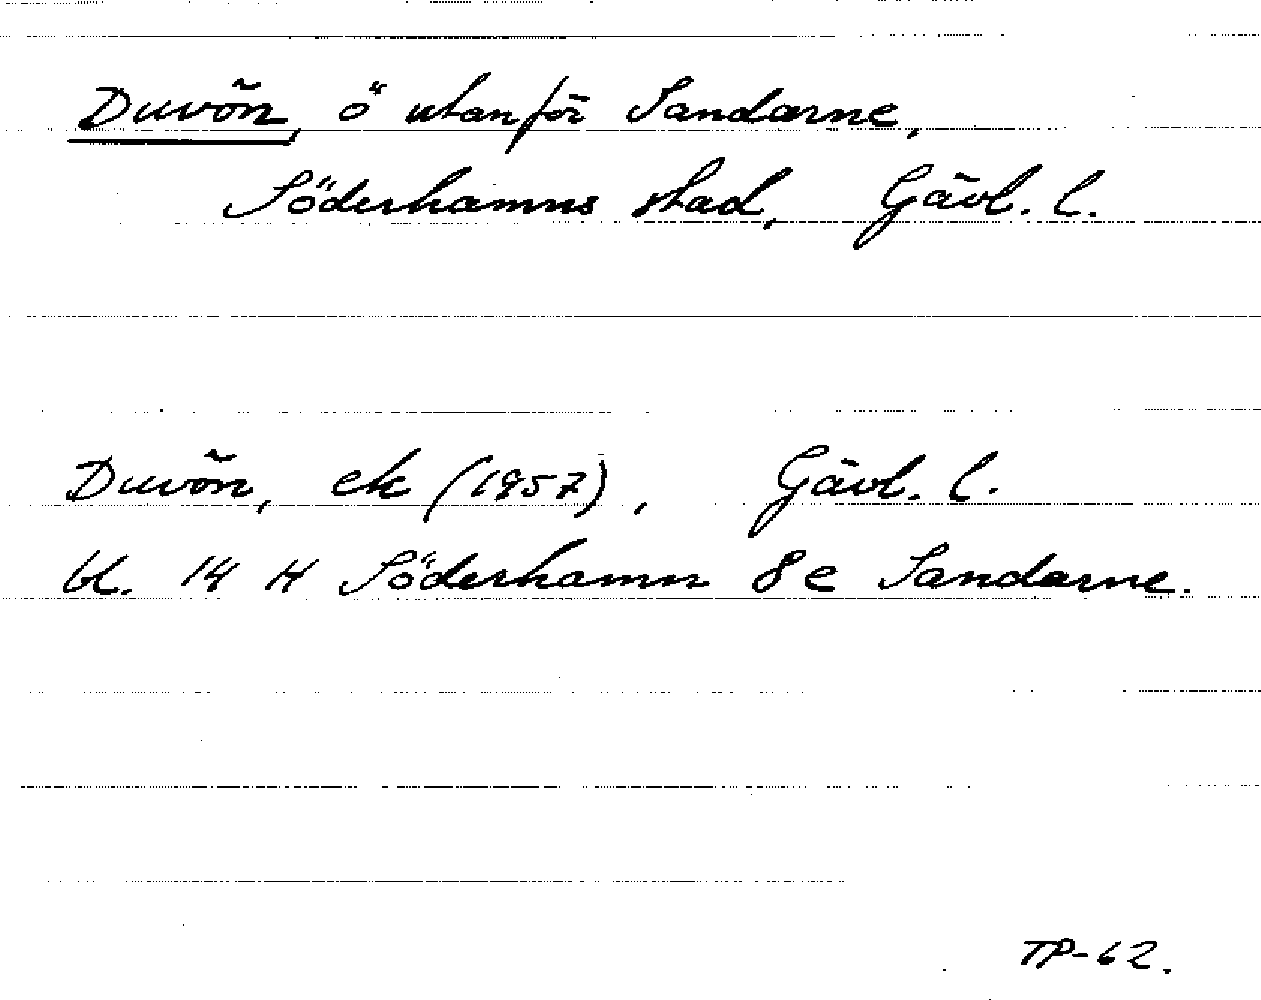 Duvön, ö utanför Sandarne,
Söderhamns stad, Gävl. l.
Duvön, ek (1957), Gävl. l.
bl. 14 H Söderhamn 8 e Sandarne.
TP-62.